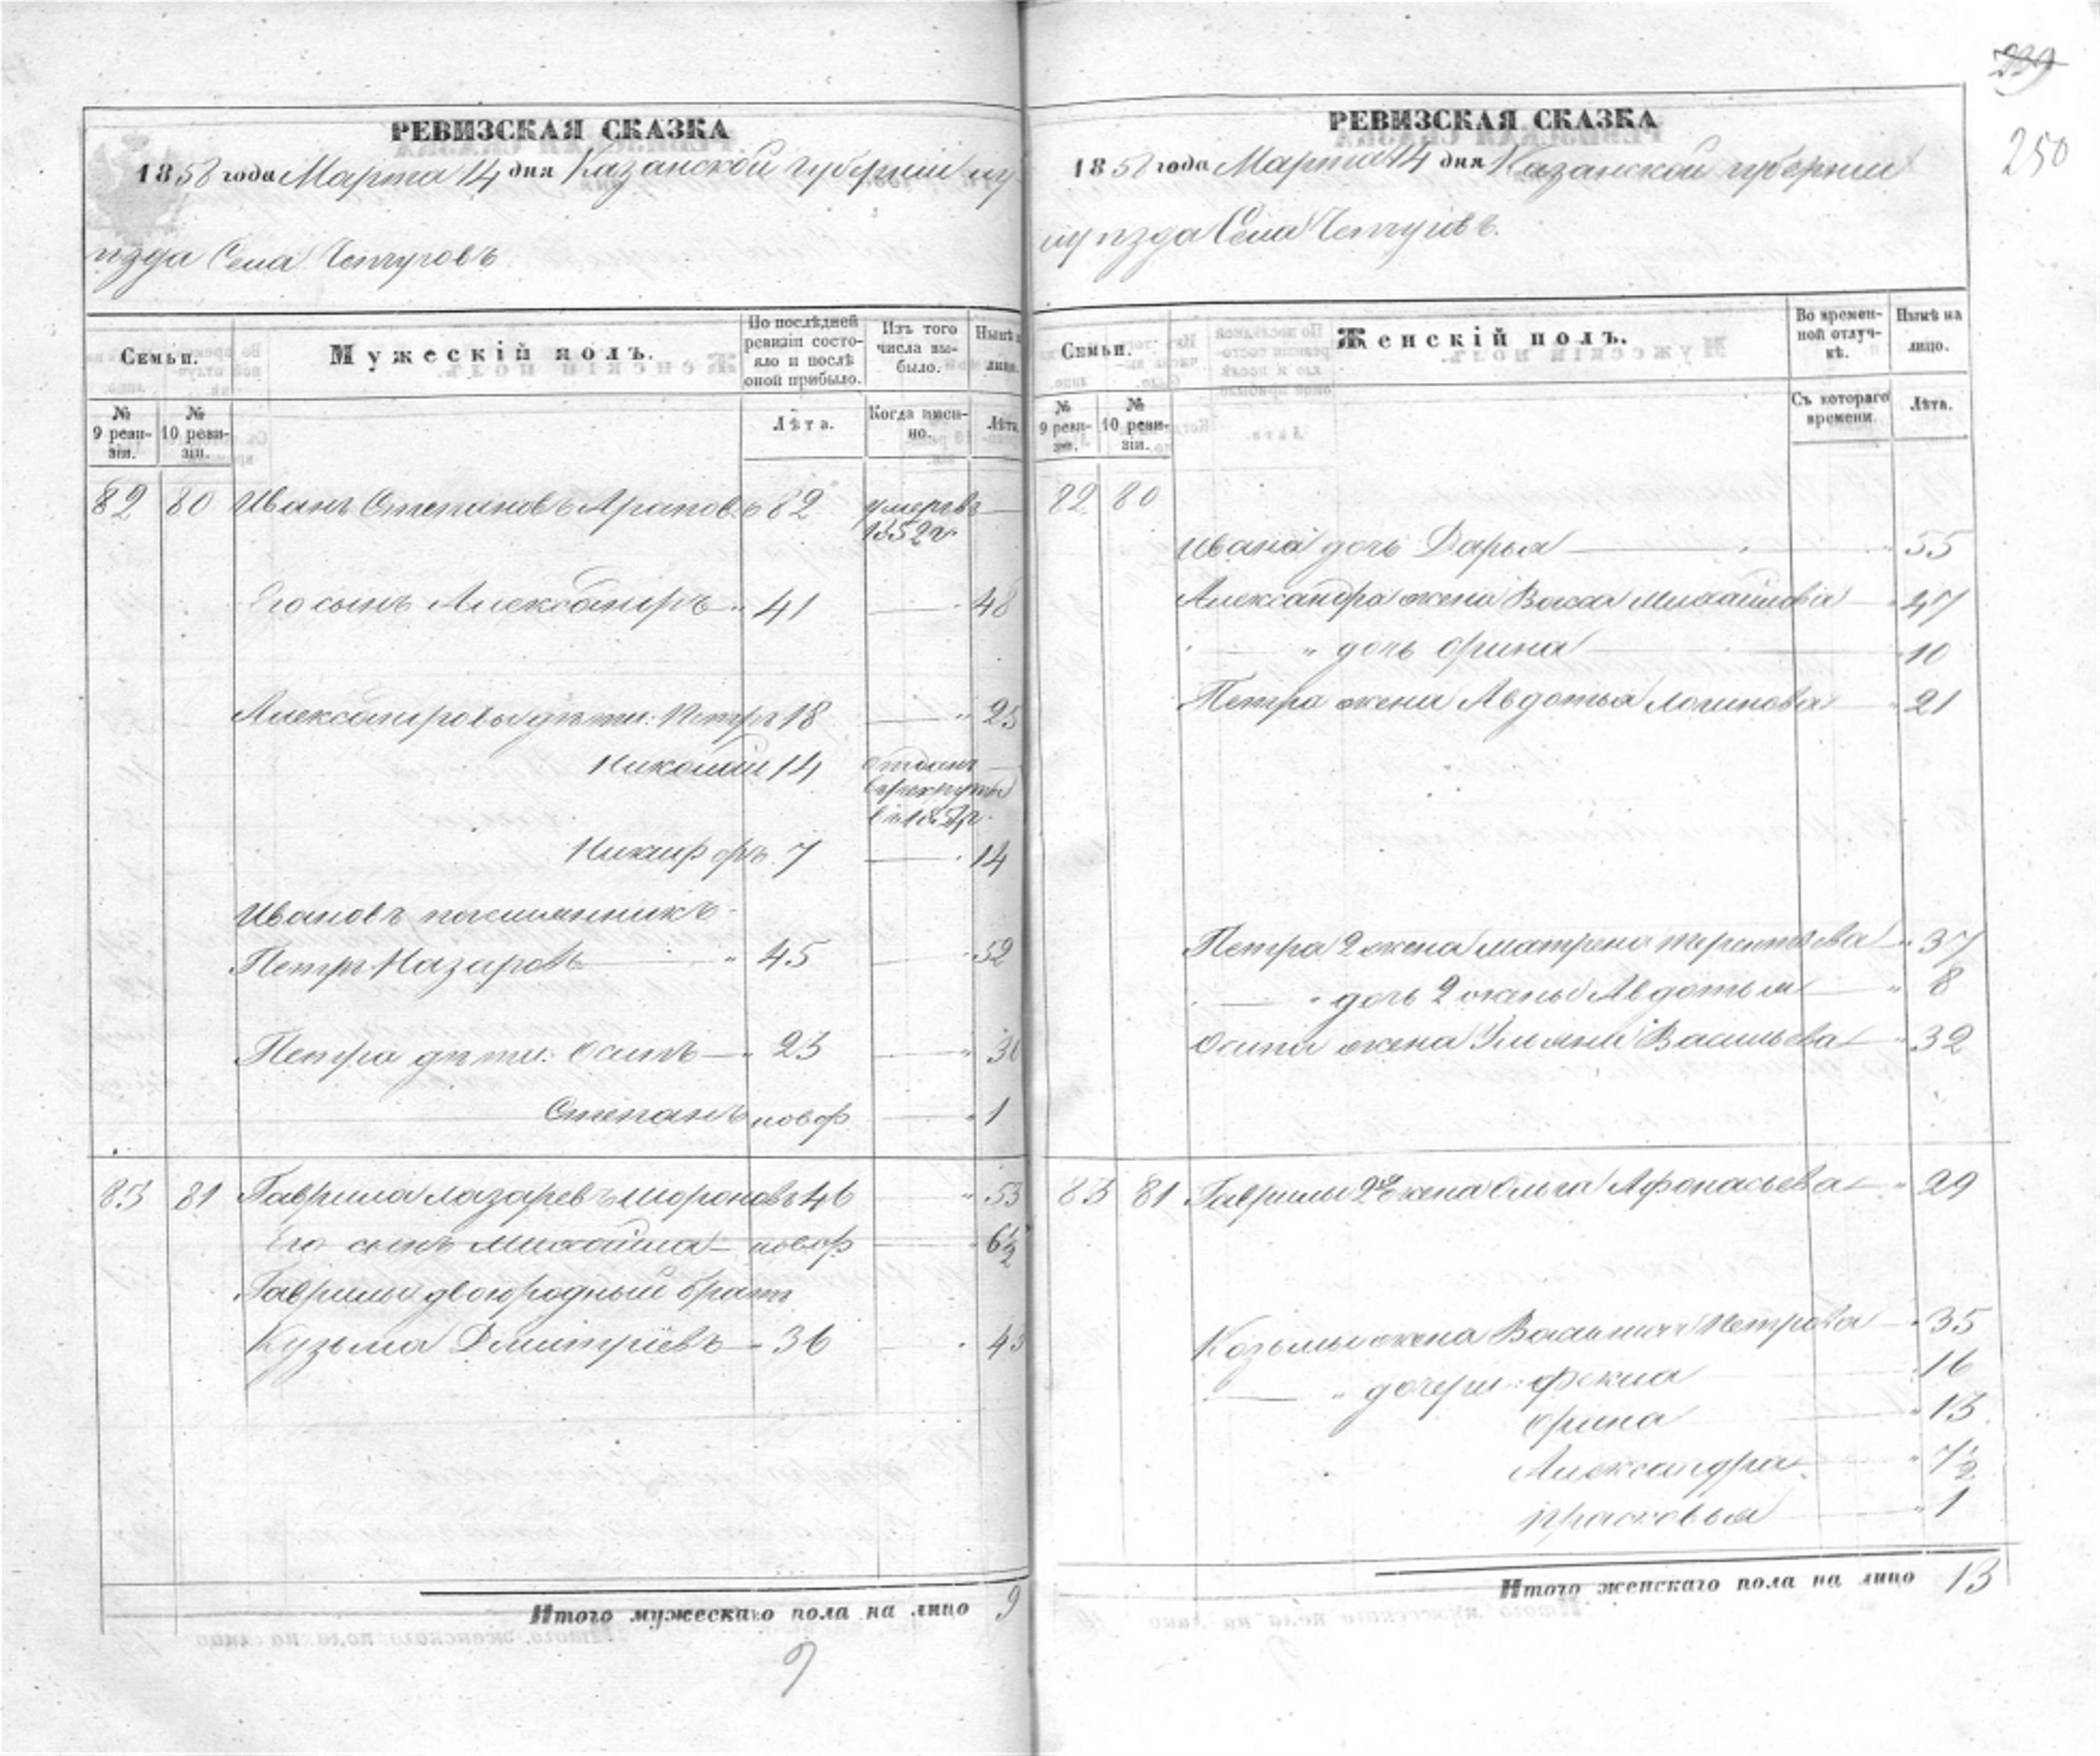 239
250
РЕВИЗСКАЯ СКАЗКА
1858 года Марта 14 дня Казанской губерніи и у
ѣзда Села Чепчуговъ
Семьи.
Мужескій полъ.
По послѣдней ревизіи состояло и послѣ оной прибыло.
Изъ того числа выбыло.
Нынѣ на лицо.
№ 9 реви-зіи.
№ 10 реви-зіи.
Лѣта.
Когда имен-но.
Лѣта.
82 80 Иванъ Степановъ Араповъ 82 умеръ въ 1852 г.
Его сынъ Александръ 41 48
Александровы дѣти: Петръ 18 25
Николай 14 отданъ въ рекруты въ г.
Никифоръ 7 14
Ивановъ племянникъ
Петръ Назаровъ 45 52
Петра дѣти: Осипъ 23 30
Степанъ новор 1
83 81 Гаврила Лазаревъ 46 53
Его сынъ Михайла новор 6½
Гаврилы двоюродный братъ
Кузьма Дмитріевъ 36 43
Итого мужескаго пола на лицо 9
9
РЕВИЗСКАЯ СКАЗКА
1858 года Марта 14 дня Казанской губерніи
и уѣзда Села Чепчуговъ.
Семьи.
Женскій полъ.
Во времен-ной отлуч-кѣ.
Нынѣ на лицо.
№ 9 реви-зіи.
№ 10 реви-зіи.
Съ котораго времени.
Лѣта.
82 80
Ивана дочь Дарья 55
Александра жена Васса Михайлова 47
" дочь Орина 10
Петра жена Авдотья Логинова 21
Петра 2 жена Матрена Терентьева 37
" дочь 2 жены Авдотья 8
Осипа жена Ульяна Васильева 32
83 81 Гаврилы 2я жена Ольга Афонасьева 29
Козьмы жена Василиса Петрова 35
" дочери: Фекла 16
Орина 13
Александра 7½
Прасковья 1
Итого женскаго пола на лицо 13